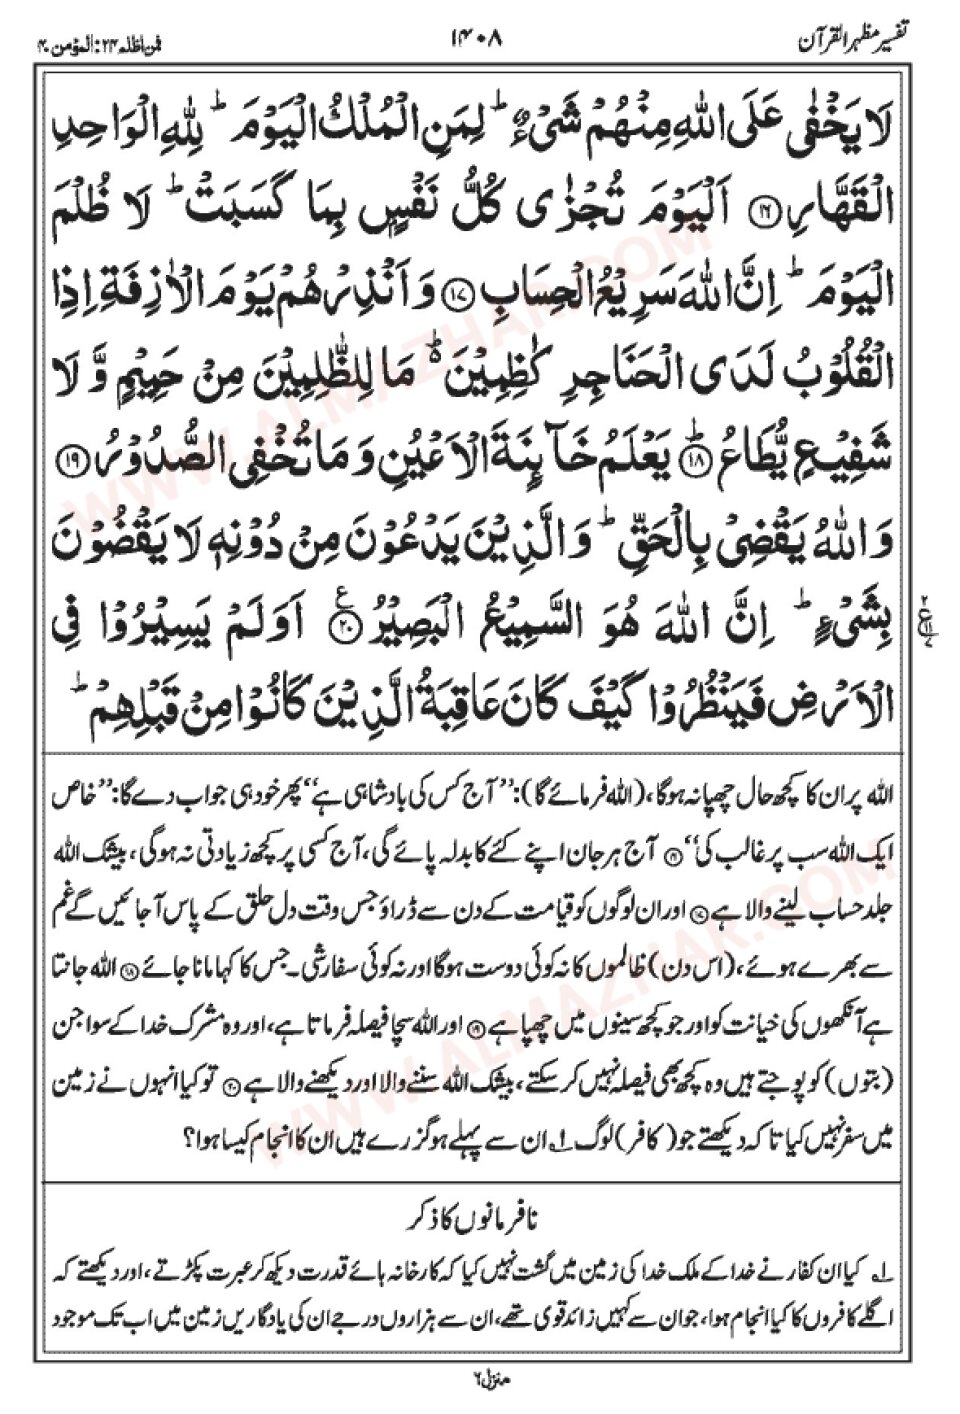 تفسیر مظہر القرآن
۱۴۰۸
فمن اظلم ۲۴: المؤمن ۴۰
لَا يَخْفٰى عَلَى اللّٰهِ مِنْهُمْ شَيْءٌ ؕ لِمَنِ الْمُلْكُ الْيَوْمَ ؕ لِلّٰهِ الْوَاحِدِ
الْقَهَّارِ ۝۱۶ اَلْيَوْمَ تُجْزٰى كُلُّ نَفْسٍۭ بِمَا كَسَبَتْ ؕ لَا ظُلْمَ
الْيَوْمَ ؕ اِنَّ اللّٰهَ سَرِيْعُ الْحِسَابِ ۝۱۷ وَ اَنْذِرْهُمْ يَوْمَ الْاٰزِفَةِ اِذِ
الْقُلُوْبُ لَدَى الْحَنَاجِرِ كٰظِمِيْنَ ؕ۬ مَا لِلظّٰلِمِيْنَ مِنْ حَمِيْمٍ وَّ لَا
شَفِيْعٍ يُّطَاعُ ۝۱۸ؕ يَعْلَمُ خَآىِٕنَةَ الْاَعْيُنِ وَ مَا تُخْفِى الصُّدُوْرُ ۝۱۹
وَ اللّٰهُ يَقْضِيْ بِالْحَقِّ ؕ وَ الَّذِيْنَ يَدْعُوْنَ مِنْ دُوْنِهٖ لَا يَقْضُوْنَ
بِشَيْءٍ ؕ اِنَّ اللّٰهَ هُوَ السَّمِيْعُ الْبَصِيْرُ ۝۲۰ ع اَوَ لَمْ يَسِيْرُوْا فِي
الْاَرْضِ فَيَنْظُرُوْا كَيْفَ كَانَ عَاقِبَةُ الَّذِيْنَ كَانُوْا مِنْ قَبْلِهِمْ ؕ
۲
ع
۱۱
۷
اللہ پر ان کا کچھ حال چھپا نہ ہوگا، (اللہ فرمائے گا): ”آج کس کی بادشاہی ہے“ پھر خود ہی جواب دے گا: ”خاص
ایک اللہ سب پر غالب کی“ ۝۱۶ آج ہر جان اپنے کئے کا بدلہ پائے گی، آج کسی پر کچھ زیادتی نہ ہوگی، بیشک اللہ
جلد حساب لینے والا ہے ۝۱۷ اور ان لوگوں کو قیامت کے دن سے ڈراؤ جس وقت دل حلق کے پاس آجائیں گے غم
سے بھرے ہوئے، (اس دن) ظالموں کا نہ کوئی دوست ہوگا اور نہ کوئی سفارشی۔ جس کا کہا مانا جائے ۝۱۸ اللہ جانتا
ہے آنکھوں کی خیانت کو اور جو کچھ سینوں میں چھپا ہے ۝۱۹ اور اللہ سچا فیصلہ فرماتا ہے، اور وہ مشرک خدا کے سوا جن
(بتوں) کو پوجتے ہیں وہ کچھ بھی فیصلہ نہیں کر سکتے، بیشک اللہ سننے والا اور دیکھنے والا ہے ۝۲۰ تو کیا انہوں نے زمین
میں سفر نہیں کیا تاکہ دیکھتے جو (کافر) لوگ ۱؂ ان سے پہلے ہو گزرے ہیں ان کا انجام کیسا ہوا؟
نافرمانوں کا ذکر
۱؂ کیا ان کفار نے خدا کے ملک خدا کی زمین میں گشت نہیں کیا کہ کارخانہ ہائے قدرت دیکھ کر عبرت پکڑتے، اور دیکھتے کہ
اگلے کافروں کا کیا انجام ہوا، جو ان سے کہیں زائد قوی تھے، ان سے ہزاروں درجے ان کی یادگاریں زمین میں اب تک موجود
منزل ۶
WWW.ALMAZHAR.COM
WWW.ALMAZHAR.COM